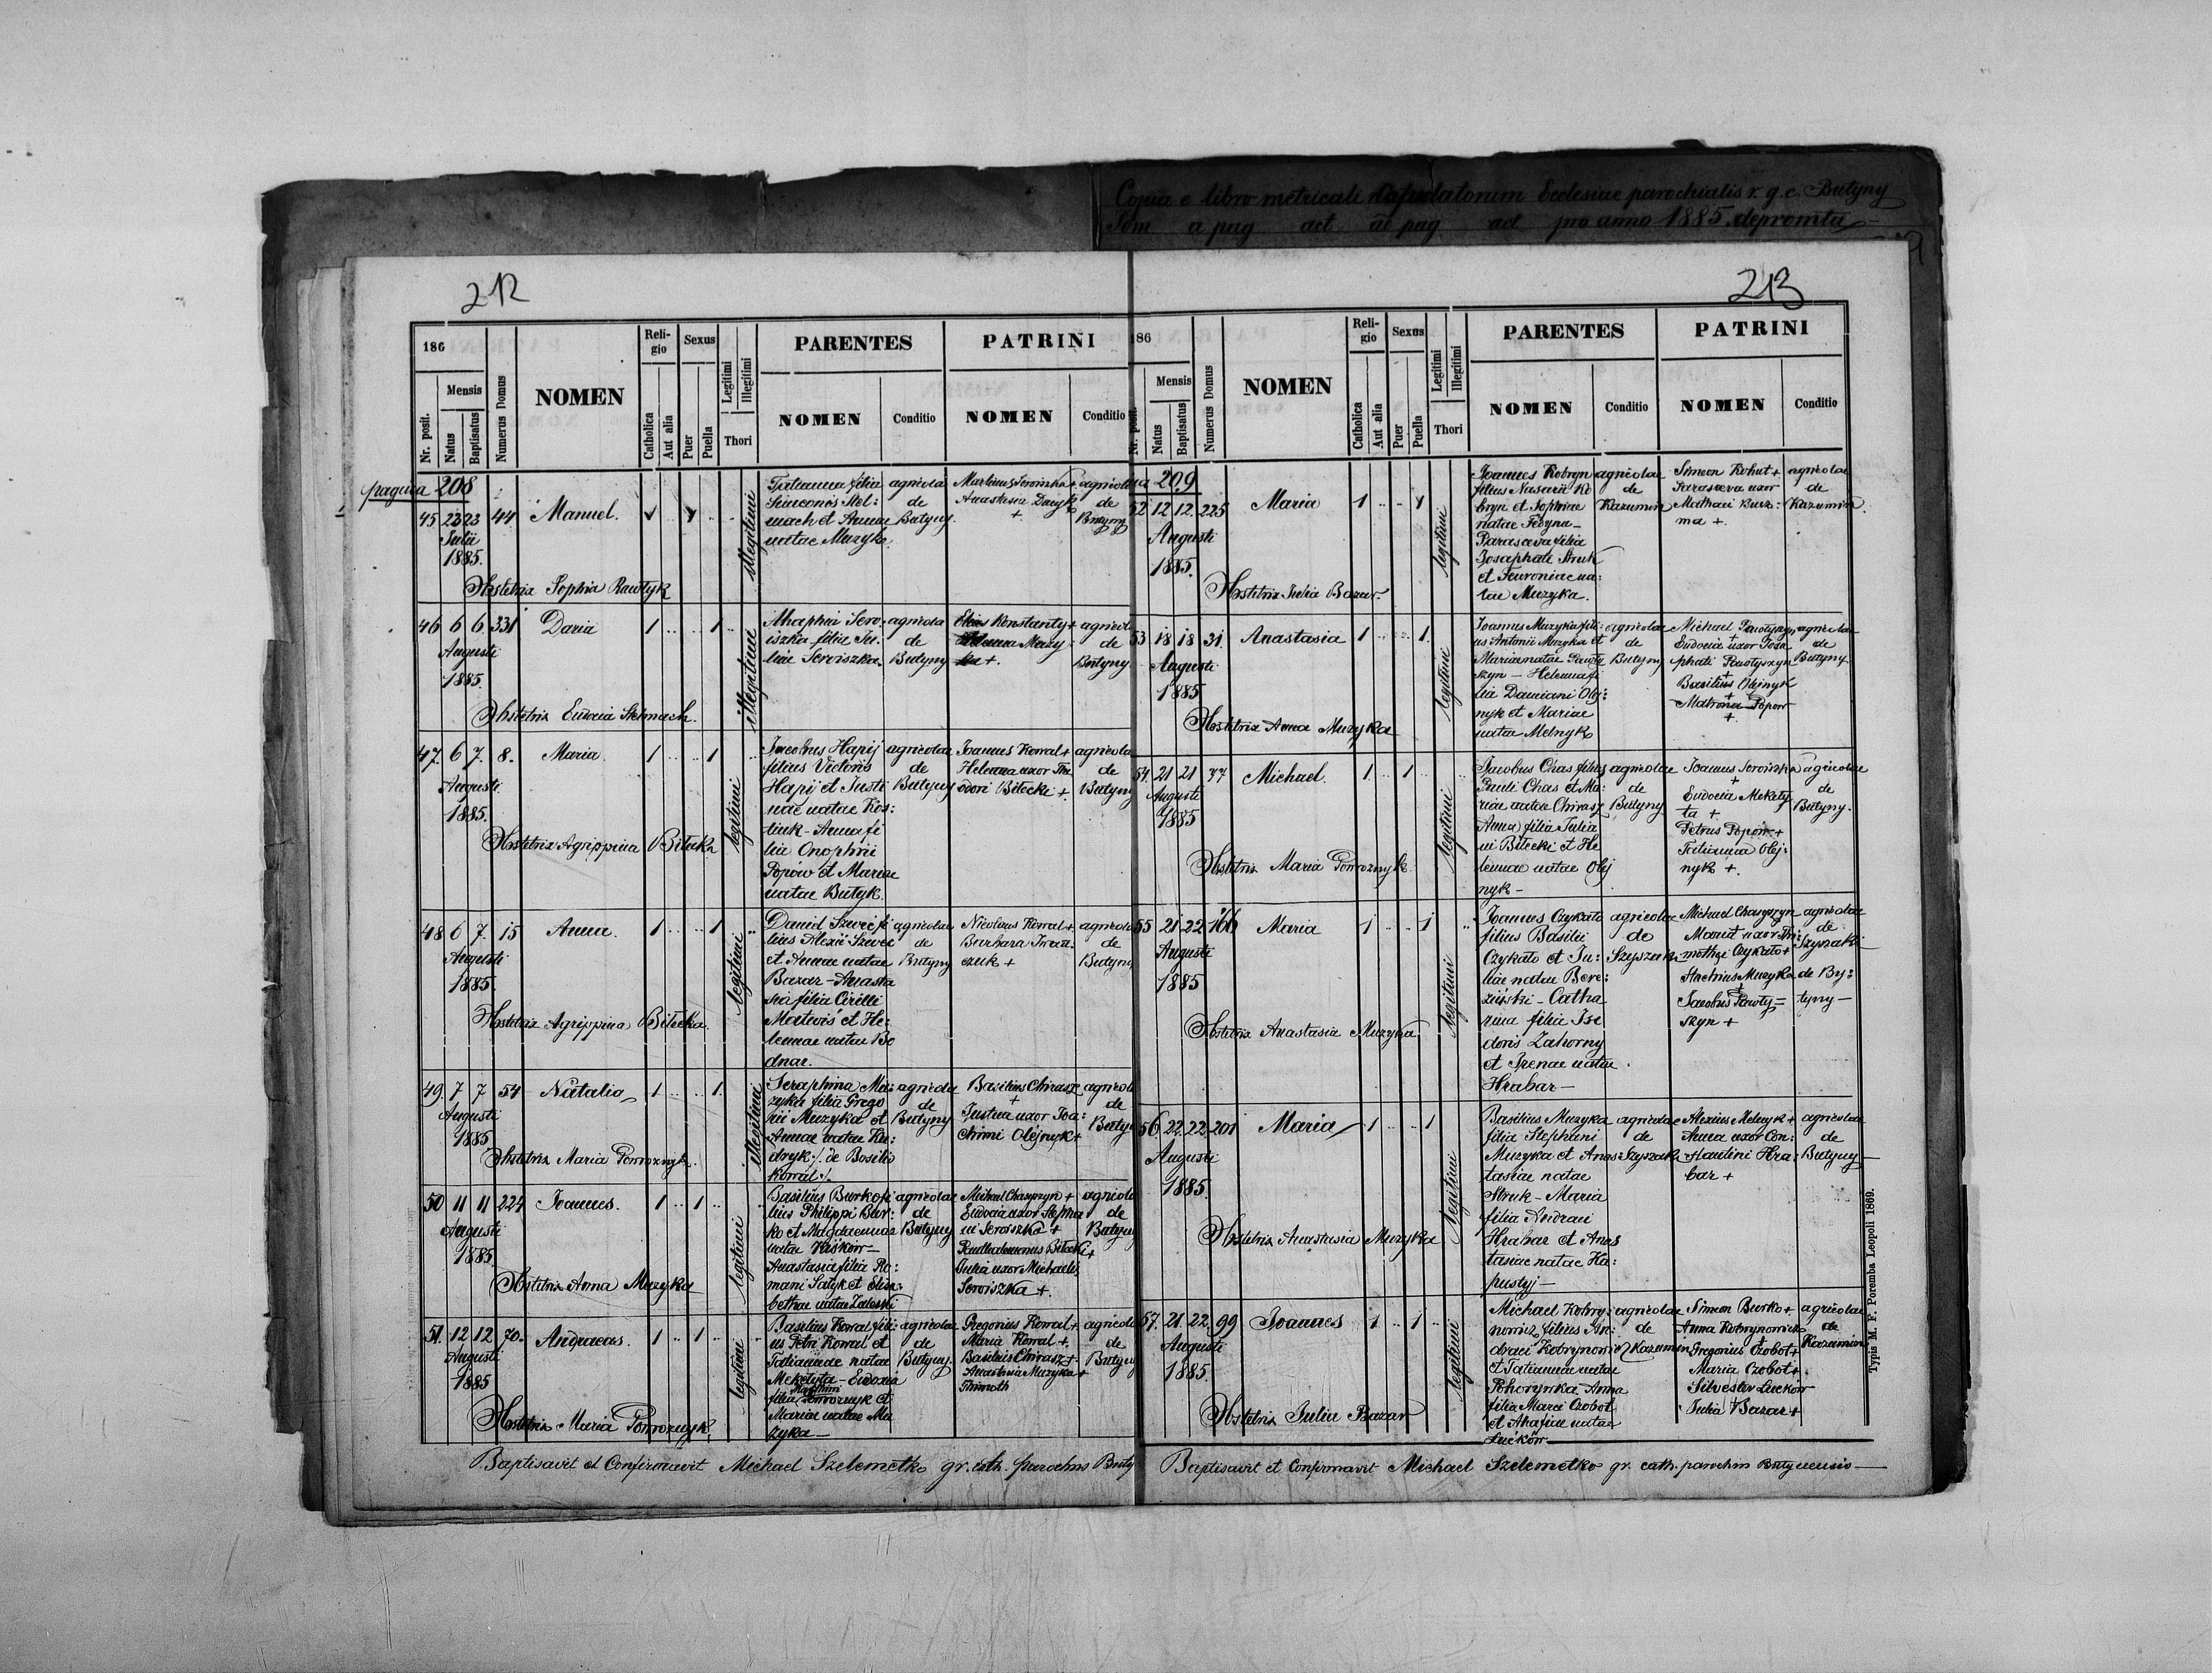 Copia e libro metricali Copulatorum Ecclesiae parochialis r. g. c. Butyny
Tom a pag act ad pag act pro anno 1885 depromta
212
186
Nr. posit.
Mensis
Natus
Baptisatus
Numerus Domus
NOMEN
Religio
Catholica
Aut alia
Sexus
Puer
Puella
Legitimi
Illegitimi
Thori
PARENTES
NOMEN
Conditio
PATRINI
NOMEN
Conditio
pagina 208
45 23 23 44 Manuel.
Julii
1885.
illegitimi
Tatianna filia
Simeonis Stel:
mach et Annae
natae Muzyka
agricola
de
Butyny.
Martinus Seroiszka +
Anastasia Dacyk
+
agricolae
de
Butyny
Obstetrix Sophia Pawlyk
46 6 6 331 Daria 1 1
Augusti
1885.
illegitimi
Ahaphia Sero
iszka filia Ju
liae Seroiszka
agricola
de
Butyny
Elias Konstanty +
Muzy
ka +.
agricol
de
Butyny
Obstetrix Eudocia Stelmach.
47. 6 7. 8. Maria. 1 1
Augusti
1885.
legitimi
Jacobus Hapij
filius Victoris
Hapij et Justi
nae natae Kos:
tiuk - Anna fi
lia Onophrii
Popow et Mariae
natae Butyk.
agricolae
de
Butyny
Joannes Kowal +
Helenna uxor The
odori Bilecki +.
agricola
de
Butyny
Obstetrix Agrippina Bilecka
48 6 7. 15 Anna. 1 1
Augusti
1885.
legitimi
Daniel Szwec fi
lius Alexii Szwec
et Annae natae
Bazar - Anasta
sia filia Cirilli
Matwiś et He:
lennae natae Bo
dnar.
agricolae
de
Butyny
Nicolaus Kowal +
Barbara Iwan:
czuk +
agricola
de
Butyny
Obstetrix Agrippina Bilecka.
49. 7 7 54 Natalia 1 1.
Augusti
1885
illegitimi
Seraphina Mu:
zyka filia Grego
rii Muzyka et
Annae natae Ku:
dryk ·/. de Basilio
Kowal ·/.
agricola
de
Butyny
Basilius Chirasz
+
Justina uxor Joa:
chimi Olejnyk +
agricol
de
Butyn
Obstetrix Maria Pomoznyk.
50 11 11 224 Joannes. 1 1
Augusti
1885.
legitimi
Basilius Burko fi
lius Philippi Bur:
ko et Magdalennae
natae Kiśkow —
Anastasia filia Ro:
mani Satyk et Elisa:
bethae natae Zaleski
agricolae
de
Butyny
Michael Chaszczyn +
Eudocia uxor Stepha
ni Seroiszka +
Panthalemonus Bilecki +
Julia uxor Michaelis
Seroiszka +.
agricola
de
Butyny
Obstetrix Anna Muzyka
51. 12 12 70. Andraeas. 1 1
Augusti
1885
legitimi
Basilius Kowal fili:
us Petri Kowal et
Tatiannae natae
Mekelyta - Eudocia
filia Pomoznyk et
Mariae natae Mu
zyka —
agricolae
de
Butyny.
Gregorius Kowal +
Maria Kowal +.
Basilius Chirasz +
Anastasia Muzyka +
agricola
de
Butyny
Obstetrix Maria Pomoznyk.
Baptisavit et Confirmavit Michael Szelemetko gr. cath. parochus Buty
213
86
Nr. posit.
Mensis
Natus
Baptisatus
Numerus Domus
NOMEN
Religio
Catholica
Aut alia
Sexus
Puer
Puella
Legitimi
Illegitimi
Thori
PARENTES
NOMEN
Conditio
PATRINI
NOMEN
Conditio
na 209
52 12 12. 225 Maria 1 1
Augusti
1885.
legitimi
Joannes Kobryn
filius Nasarii Ko
bryn et Sophiae
natae Fedyna —
Parasceva filia
Josaphati Struk
et Fewroniae na:
tae Muzyka.
agricolae
de
Kazumin
Simeon Kohut +
Parasceva uxor
Mathaei Kuz:
ma +.
agricolae
de
Kazumin.
Obstetrix Julia Bazar.
53 18 18 31. Anastasia 1 1.
Augusti
1885
legitimi
Joannes Muzyka fili:
us Antonii Muzyka et
Mariae natae Pawty
szyn — Helenna fi
lia Damiani Olej:
nyk et Mariae
natae Melnyk
agricolae
de
Butyny
Michael Pawtyszyn
+
Eudocia uxor Josa
phati Pawtyszyn
+
Basilius Olejnyk
+
Matrona Popow
+.
agricolae
de
Butyny.
Obstetrix Anna Muzyka
54. 21 21 77 Michael. 1 1
Augusti
1885
legitimi
Jacobus Chas filius
Pauli Chas et Ma:
riae natae Chirasz
Anna filia Julia
ni Bilecki et He
lennae natae Olej
nyk —
agricolae
de
Butyny
Joannes Seroiszka
+
Eudocia Mekely
ta +
Petrus Popow +
Tatianna Olej:
nyk +.
agricolae
de
Butyny.
Obstetrix Maria Pomoznyk
55 21 22 166 Maria 1 1
Augusti
1885
legitimi
Joannes Czykało
filius Basilii
Czykało et Ju:
liae natae Bere:
ziński - Catha
rina filia Isi
doris Zahorny
et Irenae natae
Hrabar —
agricolae
de
Szyszaki
Michael Chaszczyn
Maria uxor Thi:
mothei Czykało +
Muzyka
+
Jacobus Pawty=
szyn +
agricolae
de
Szyszaki
de By:
tyny —
Obstetrix Anastasia Muzyka
56. 22. 22. 201 Maria 1 1
Augusti
1885.
legitimi
Basilius Muzyka
filia Stephani
Muzyka et Anas:
tasiae natae
Struk - Maria
filia Andraei
Hrabar et Anas
tasiae natae Ka:
pustyj —
agricolae
de
Szyszaki
Alexius Melnyk +
Anna uxor Con:
stantini Hra:
bar +
agricolae
de
Butyny —
Obstetrix Anastasia Muzyka
57. 21. 22. 99 Joannes 1 1
Augusti
1885.
legitimi
Michael Kobry:
nowicz filius An:
draei Kobrynowicz
et Tatianna natae
Pohoryrka - Anna
filia Marci Czobot
et Ahafiae natae
Lućków —
agricolae
de
Kazumin
Simeon Burko +
Anna Kobrynowicz
Gregorius Czobot +
Maria Czobot +.
Silvester Luckow
Julia Bazar +
agricolae
de
Kazumin
Obstetrix Julia Bazar
Baptisavit et Confirmavit Michael Szelemetko gr. cath. parochus Butynensis —
Typis M. F. Poremba Leopoli 1869.